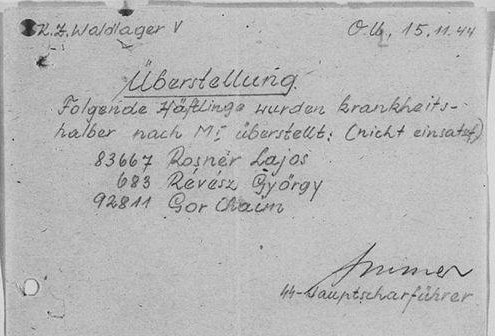 K.Z. Waldlager V
O.U., 15.11.44
Überstellung
Folgende Häftlinge wurden krankheits-
halber nach M I überstellt: (nicht einsatzf.)
83667 Rosner Lajos
683 Révész György
92811 Gor Chaim
SS-Hauptscharführer